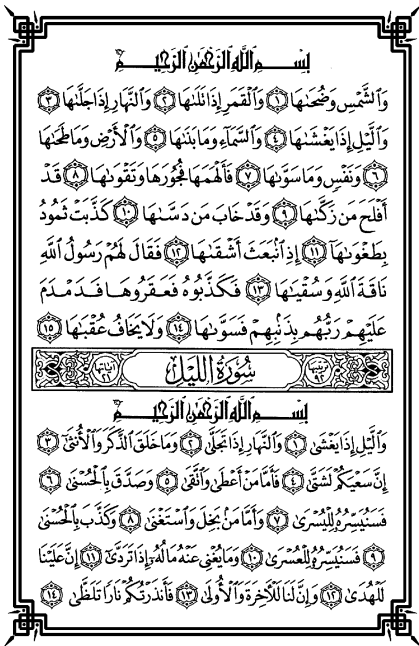 بِسْمِ اللَّهِ الرَّحْمَٰنِ الرَّحِيمِ
وَالشَّمْسِ وَضُحَىٰهَا ١ وَالْقَمَرِ إِذَا تَلَىٰهَا ٢ وَالنَّهَارِ إِذَا جَلَّىٰهَا ٣
وَاللَّيْلِ إِذَا يَغْشَىٰهَا ٤ وَالسَّمَاءِ وَمَا بَنَىٰهَا ٥ وَالْأَرْضِ وَمَا طَحَىٰهَا
٦ وَنَفْسٍ وَمَا سَوَّىٰهَا ٧ فَأَلْهَمَهَا فُجُورَهَا وَتَقْوَىٰهَا ٨ قَدْ
أَفْلَحَ مَن زَكَّىٰهَا ٩ وَقَدْ خَابَ مَن دَسَّىٰهَا ١٠ كَذَّبَتْ ثَمُودُ
بِطَغْوَىٰهَا ١١ إِذِ انبَعَثَ أَشْقَىٰهَا ١٢ فَقَالَ لَهُمْ رَسُولُ اللَّهِ
نَاقَةَ اللَّهِ وَسُقْيَىٰهَا ١٣ فَكَذَّبُوهُ فَعَقَرُوهَا فَدَمْدَمَ
عَلَيْهِمْ رَبُّهُم بِذَنبِهِمْ فَسَوَّىٰهَا ١٤ وَلَا يَخَافُ عُقْبَىٰهَا ١٥
ترتيبها ٩٢ سُورَةُ اللَّيْلِ آياتها ٢١
بِسْمِ اللَّهِ الرَّحْمَٰنِ الرَّحِيمِ
وَاللَّيْلِ إِذَا يَغْشَىٰ ١ وَالنَّهَارِ إِذَا تَجَلَّىٰ ٢ وَمَا خَلَقَ الذَّكَرَ وَالْأُنثَىٰ ٣
إِنَّ سَعْيَكُمْ لَشَتَّىٰ ٤ فَأَمَّا مَنْ أَعْطَىٰ وَاتَّقَىٰ ٥ وَصَدَّقَ بِالْحُسْنَىٰ ٦
فَسَنُيَسِّرُهُ لِلْيُسْرَىٰ ٧ وَأَمَّا مَن بَخِلَ وَاسْتَغْنَىٰ ٨ وَكَذَّبَ بِالْحُسْنَىٰ
٩ فَسَنُيَسِّرُهُ لِلْعُسْرَىٰ ١٠ وَمَا يُغْنِي عَنْهُ مَالُهُ إِذَا تَرَدَّىٰ ١١ إِنَّ عَلَيْنَا
لَلْهُدَىٰ ١٢ وَإِنَّ لَنَا لَلْآخِرَةَ وَالْأُولَىٰ ١٣ فَأَنذَرْتُكُمْ نَارًا تَلَظَّىٰ ١٤